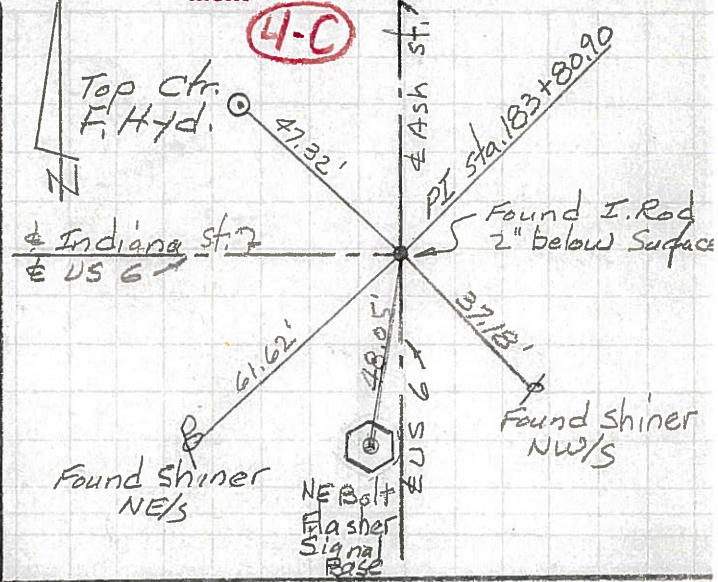 4-C
Top Ctr.
F. Hyd.
47.32'
℄ Ash st.
PI sta. 183+80.90
Found I. Rod
2" below Surface
℄ Indiana st.
℄ US 6
N
61.62'
48.05'
37.18'
℄ US 6
Found Shiner
NE/S
Found Shiner
NW/S
NE Bolt
Flasher
Signal
Base